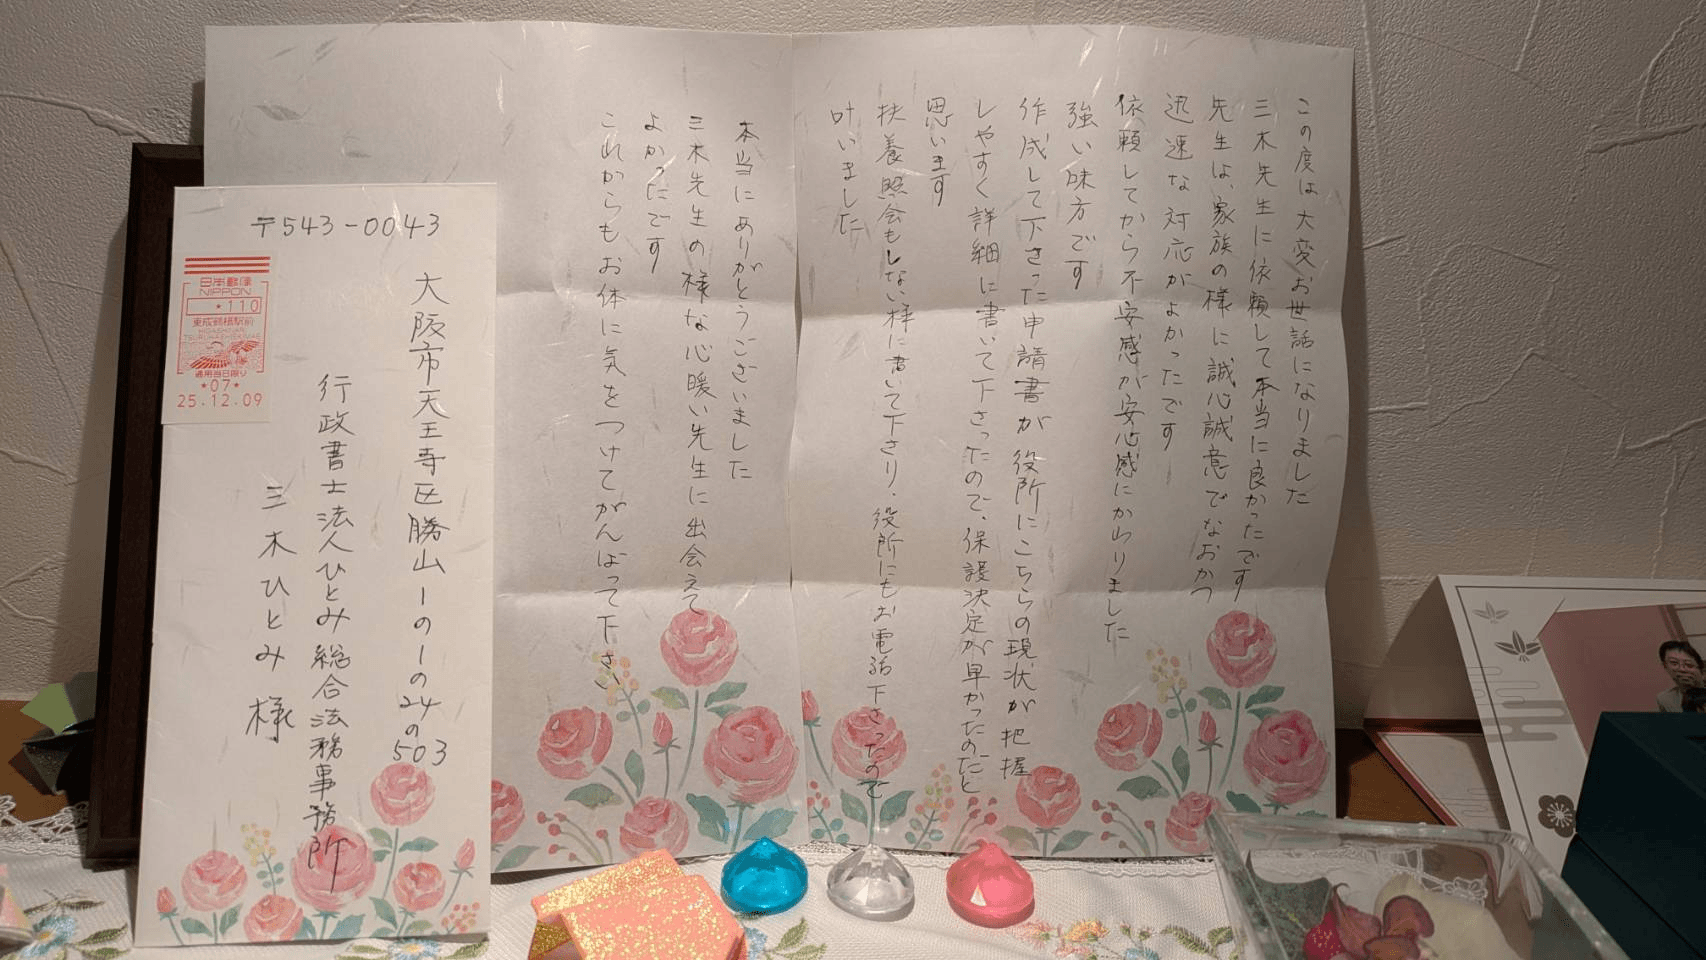 〒543-0043
大阪市天王寺区勝山1の1の24の503
行政書士法人ひとみ総合法務事務所
三木ひとみ 様
日本郵便
NIPPON
★110
東成鶴橋駅前
HIGASHINARI
TSURUHASHIEKIMAE
適用当日限り
★07★
25.12.09
この度は大変お世話になりました
三木先生に依頼して本当に良かったです
先生は、家族の様に誠心誠意でなおかつ
迅速な対応がよかったです
依頼してから不安感が安心感にかわりました
強い味方です
作成して下さった申請書が役所にこちらの現状が把握
しやすく詳細に書いて下さったので、保護決定が早かったのだと
思います
扶養照会もしない様に書いて下さり、役所にもお電話下さったので
叶いました
本当にありがとうございました
三木先生の様な心暖い先生に出会えて
よかったです
これからもお体に気をつけてがんばって下さい